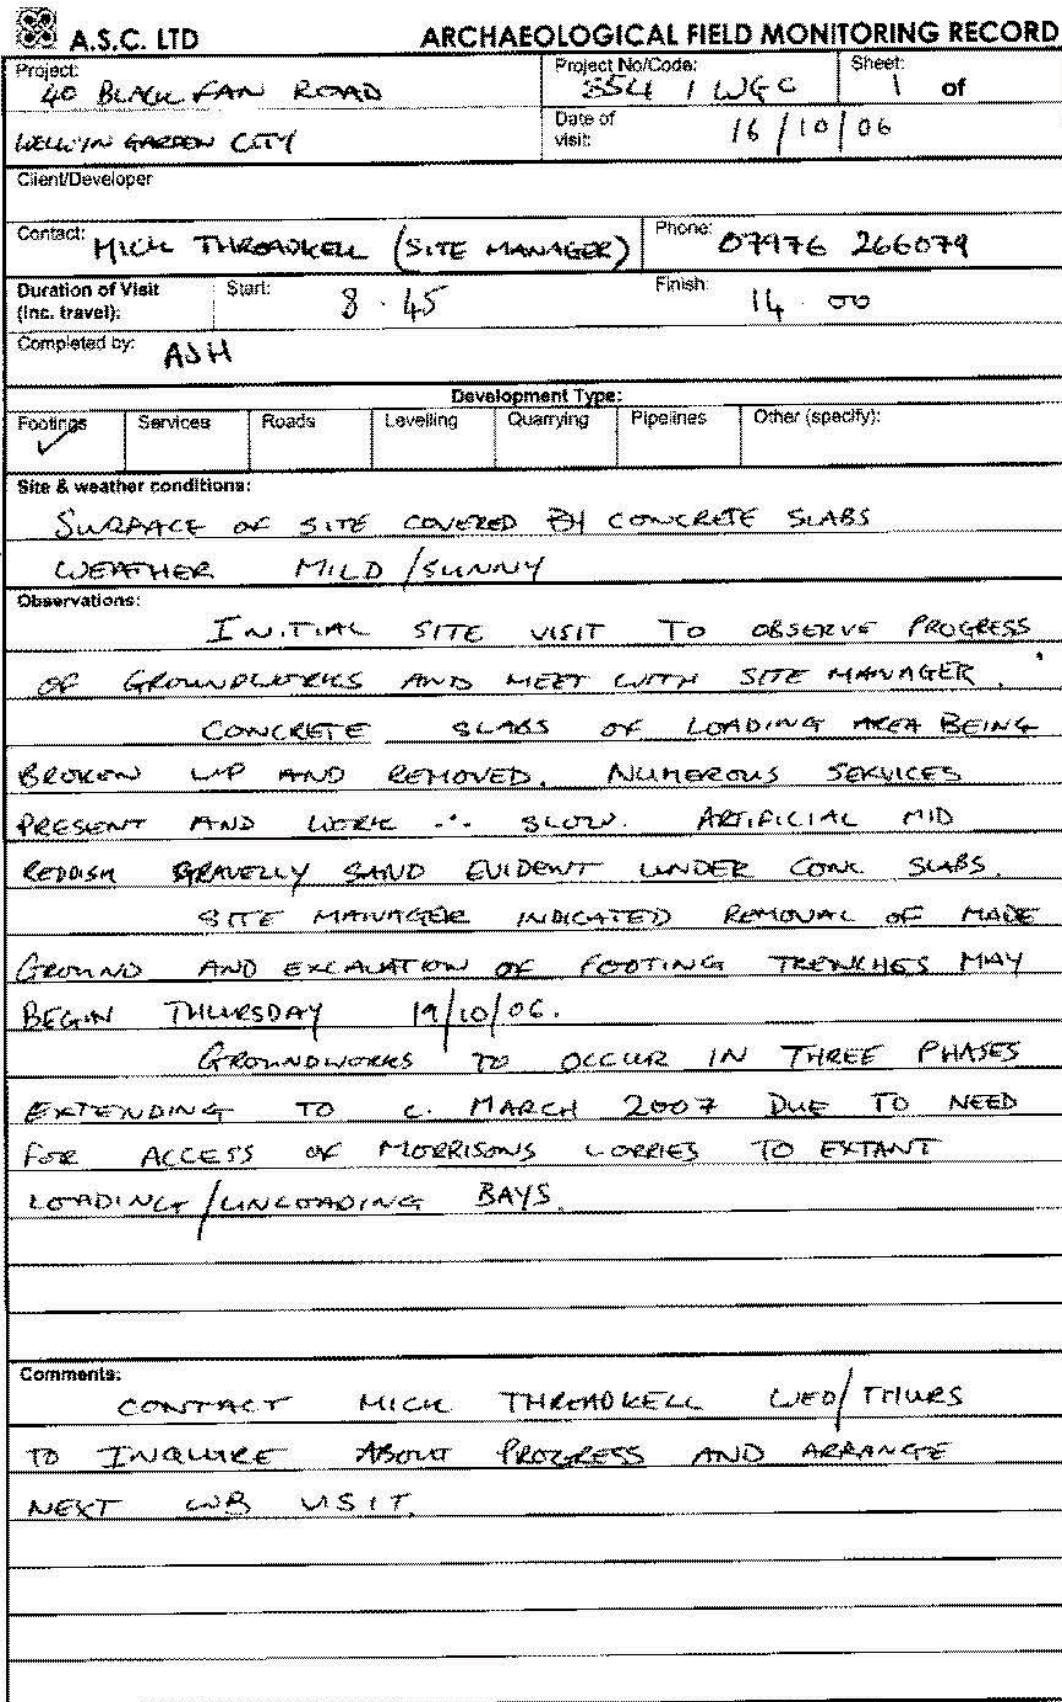 A.S.C. LTD ARCHAEOLOGICAL FIELD MONITORING RECORD
Project: Project No/Code: Sheet:
40 BLACK FAN ROAD / WGC 1 of
WELWYN GARDEN CITY Date of visit: 16/10/06
Client/Developer
Contact: MICK THREADKELL (SITE MANAGER) Phone: 07976 266079
Duration of Visit (inc. travel): Start: 8.45 Finish: 14.00
Completed by: ASH
Development Type:
Footings ✓ Services Roads Levelling Quarrying Pipelines Other (specify):
Site & weather conditions:
SURFACE OF SITE COVERED BY CONCRETE SLABS
WEATHER MILD/SUNNY
Observations:
INITIAL SITE VISIT TO OBSERVE PROGRESS
OF GROUNDWORKS AND MEET WITH SITE MANAGER.
CONCRETE SLABS OF LOADING AREA BEING
BROKEN UP AND REMOVED. NUMEROUS SERVICES
PRESENT AND WORK ∴ SLOW. ARTIFICIAL MID
REDDISH GRAVELLY SAND EVIDENT UNDER CONC SLABS.
SITE MANAGER INDICATED REMOVAL OF MADE
GROUND AND EXCAVATION OF FOOTING TRENCHES MAY
BEGIN THURSDAY 19/10/06.
GROUNDWORKS TO OCCUR IN THREE PHASES
EXTENDING TO c. MARCH 2007 DUE TO NEED
FOR ACCESS OF MORRISONS LORRIES TO EXTANT
LOADING/UNLOADING BAYS.
Comments:
CONTACT MICK THREADKELL WED/THURS
TO INQUIRE ABOUT PROGRESS AND ARRANGE
NEXT WB VISIT.